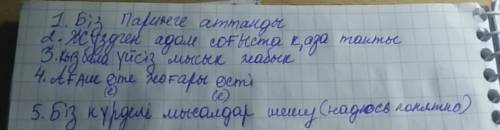 1. Біз Парижге аттанды
2. Жүздген адам соғыста қаза тапты
3. қызыл үйсіз мысық жабық
4. Ағаш өте жоғары өсті
(е) (е)
5. Біз күрделі мысалдар шешу (надюсь понятно)